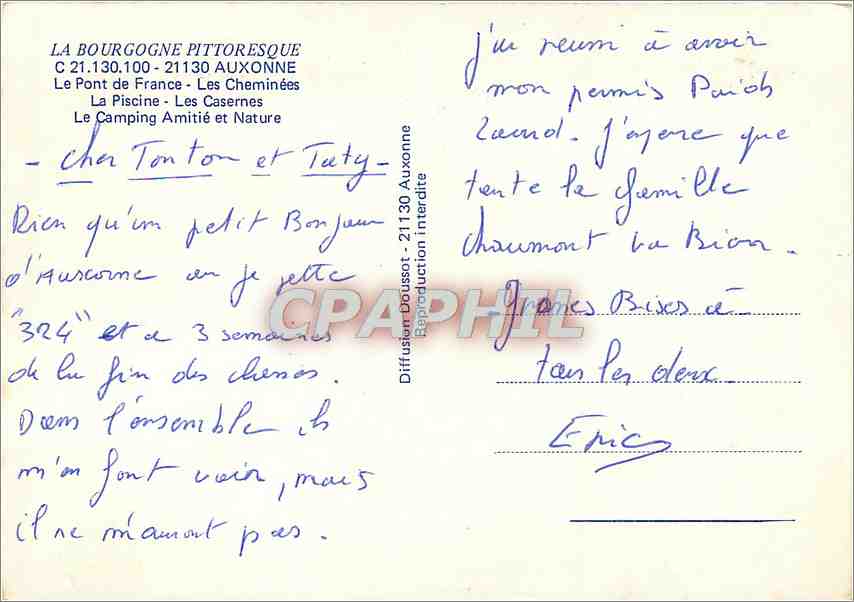 LA BOURGOGNE PITTORESQUE
C 21.130.100 - 21130 AUXONNE
Le Pont de France - Les Cheminées
La Piscine - Les Casernes
Le Camping Amitié et Nature
- Cher Tonton et Taty -
Rien qu'un petit Bonjour
d'Auxonne où je jette
"324" et à 3 semaines
de la fin des classes.
Dans l'ensemble ils
m'en font voir, mais
il ne m'auront pas.
Diffusion Doussot - 21130 Auxonne
Reproduction interdite
j'ai reussi à avoir
mon permis Poids
Lourd. J'espere que
toute la famille
chaumont va Bien.
Grones Bises à
tous les deux.
Eric
CPAPHIL